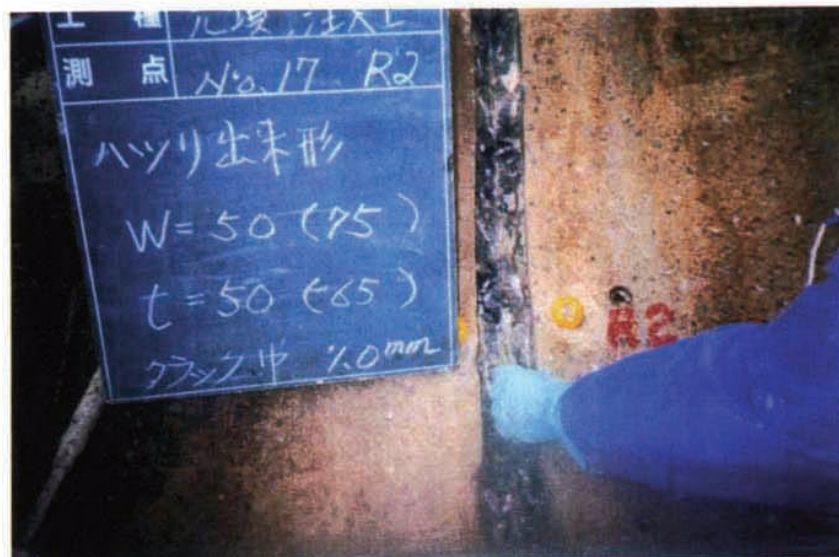 工種 充填、注入工
測点 No.17 R2
ハツリ出来形
W=50 (75)
t=50 (65)
クラック巾 1.0mm
R2